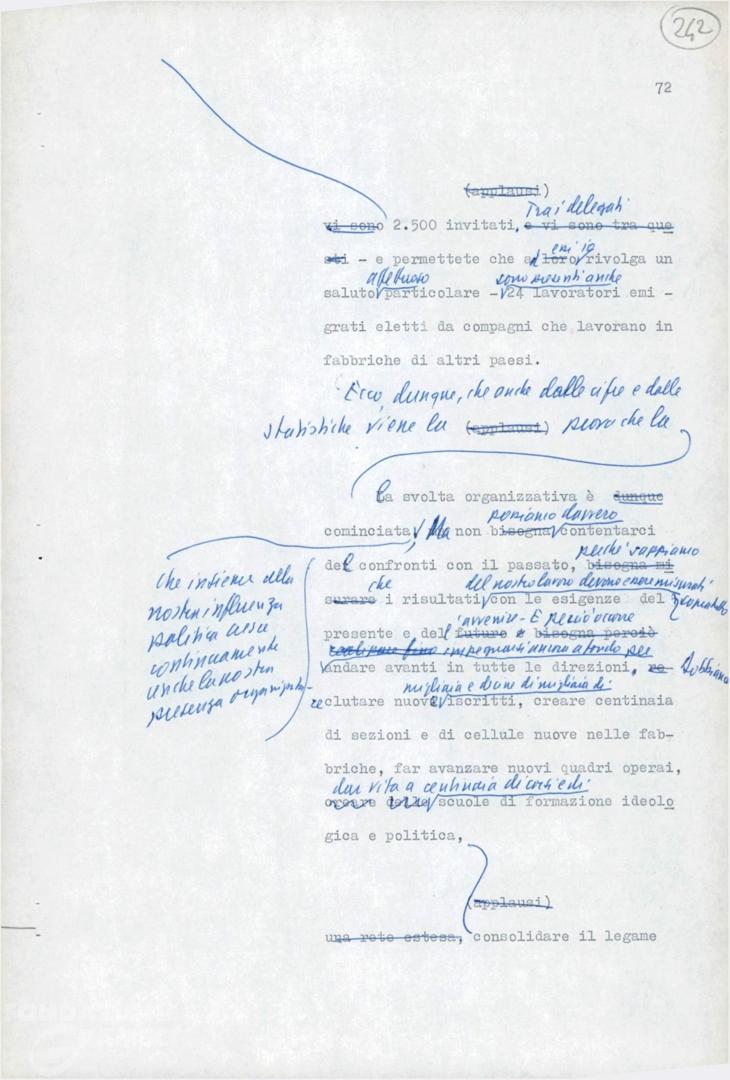 242
72
(applausi)
Tra i delegati
vi sono 2.500 invitati, e vi sono tra que
sti - e permettete che ad loro rivolga un
essi io
affettuoso sono presenti anche
saluto particolare - 24 lavoratori emi -
grati eletti da compagni che lavorano in
fabbriche di altri paesi.
Ecco dunque, che anche dalle cifre e dalle
statistiche viene la (applausi) prova che la
la svolta organizzativa è dunque
possiamo davvero
cominciata, Ma non bisogna contentarci
perché sappiamo
del confronti con il passato, bisogna mi
che del nostro lavoro devono essere misurati
surare i risultati con le esigenze del
presente e del futuro e bisogna perciò
avvenire - E perciò occorre
impegnarsi ancora a fondo per
andare avanti in tutte le direzioni, re Dobbiamo
migliaia e decine di migliaia di
clutare nuovi iscritti, creare centinaia
di sezioni e di cellule nuove nelle fab-
briche, far avanzare nuovi quadri operai,
dar vita a centinaia di corsi e di
creare delle scuole di formazione ideolo
gica e politica,
(applausi)
una rete estesa, consolidare il legame
che insieme alla
nostra influenza
politica cresce
continuamente
anche la nostra
presenza organizzata
FONDAZIONE